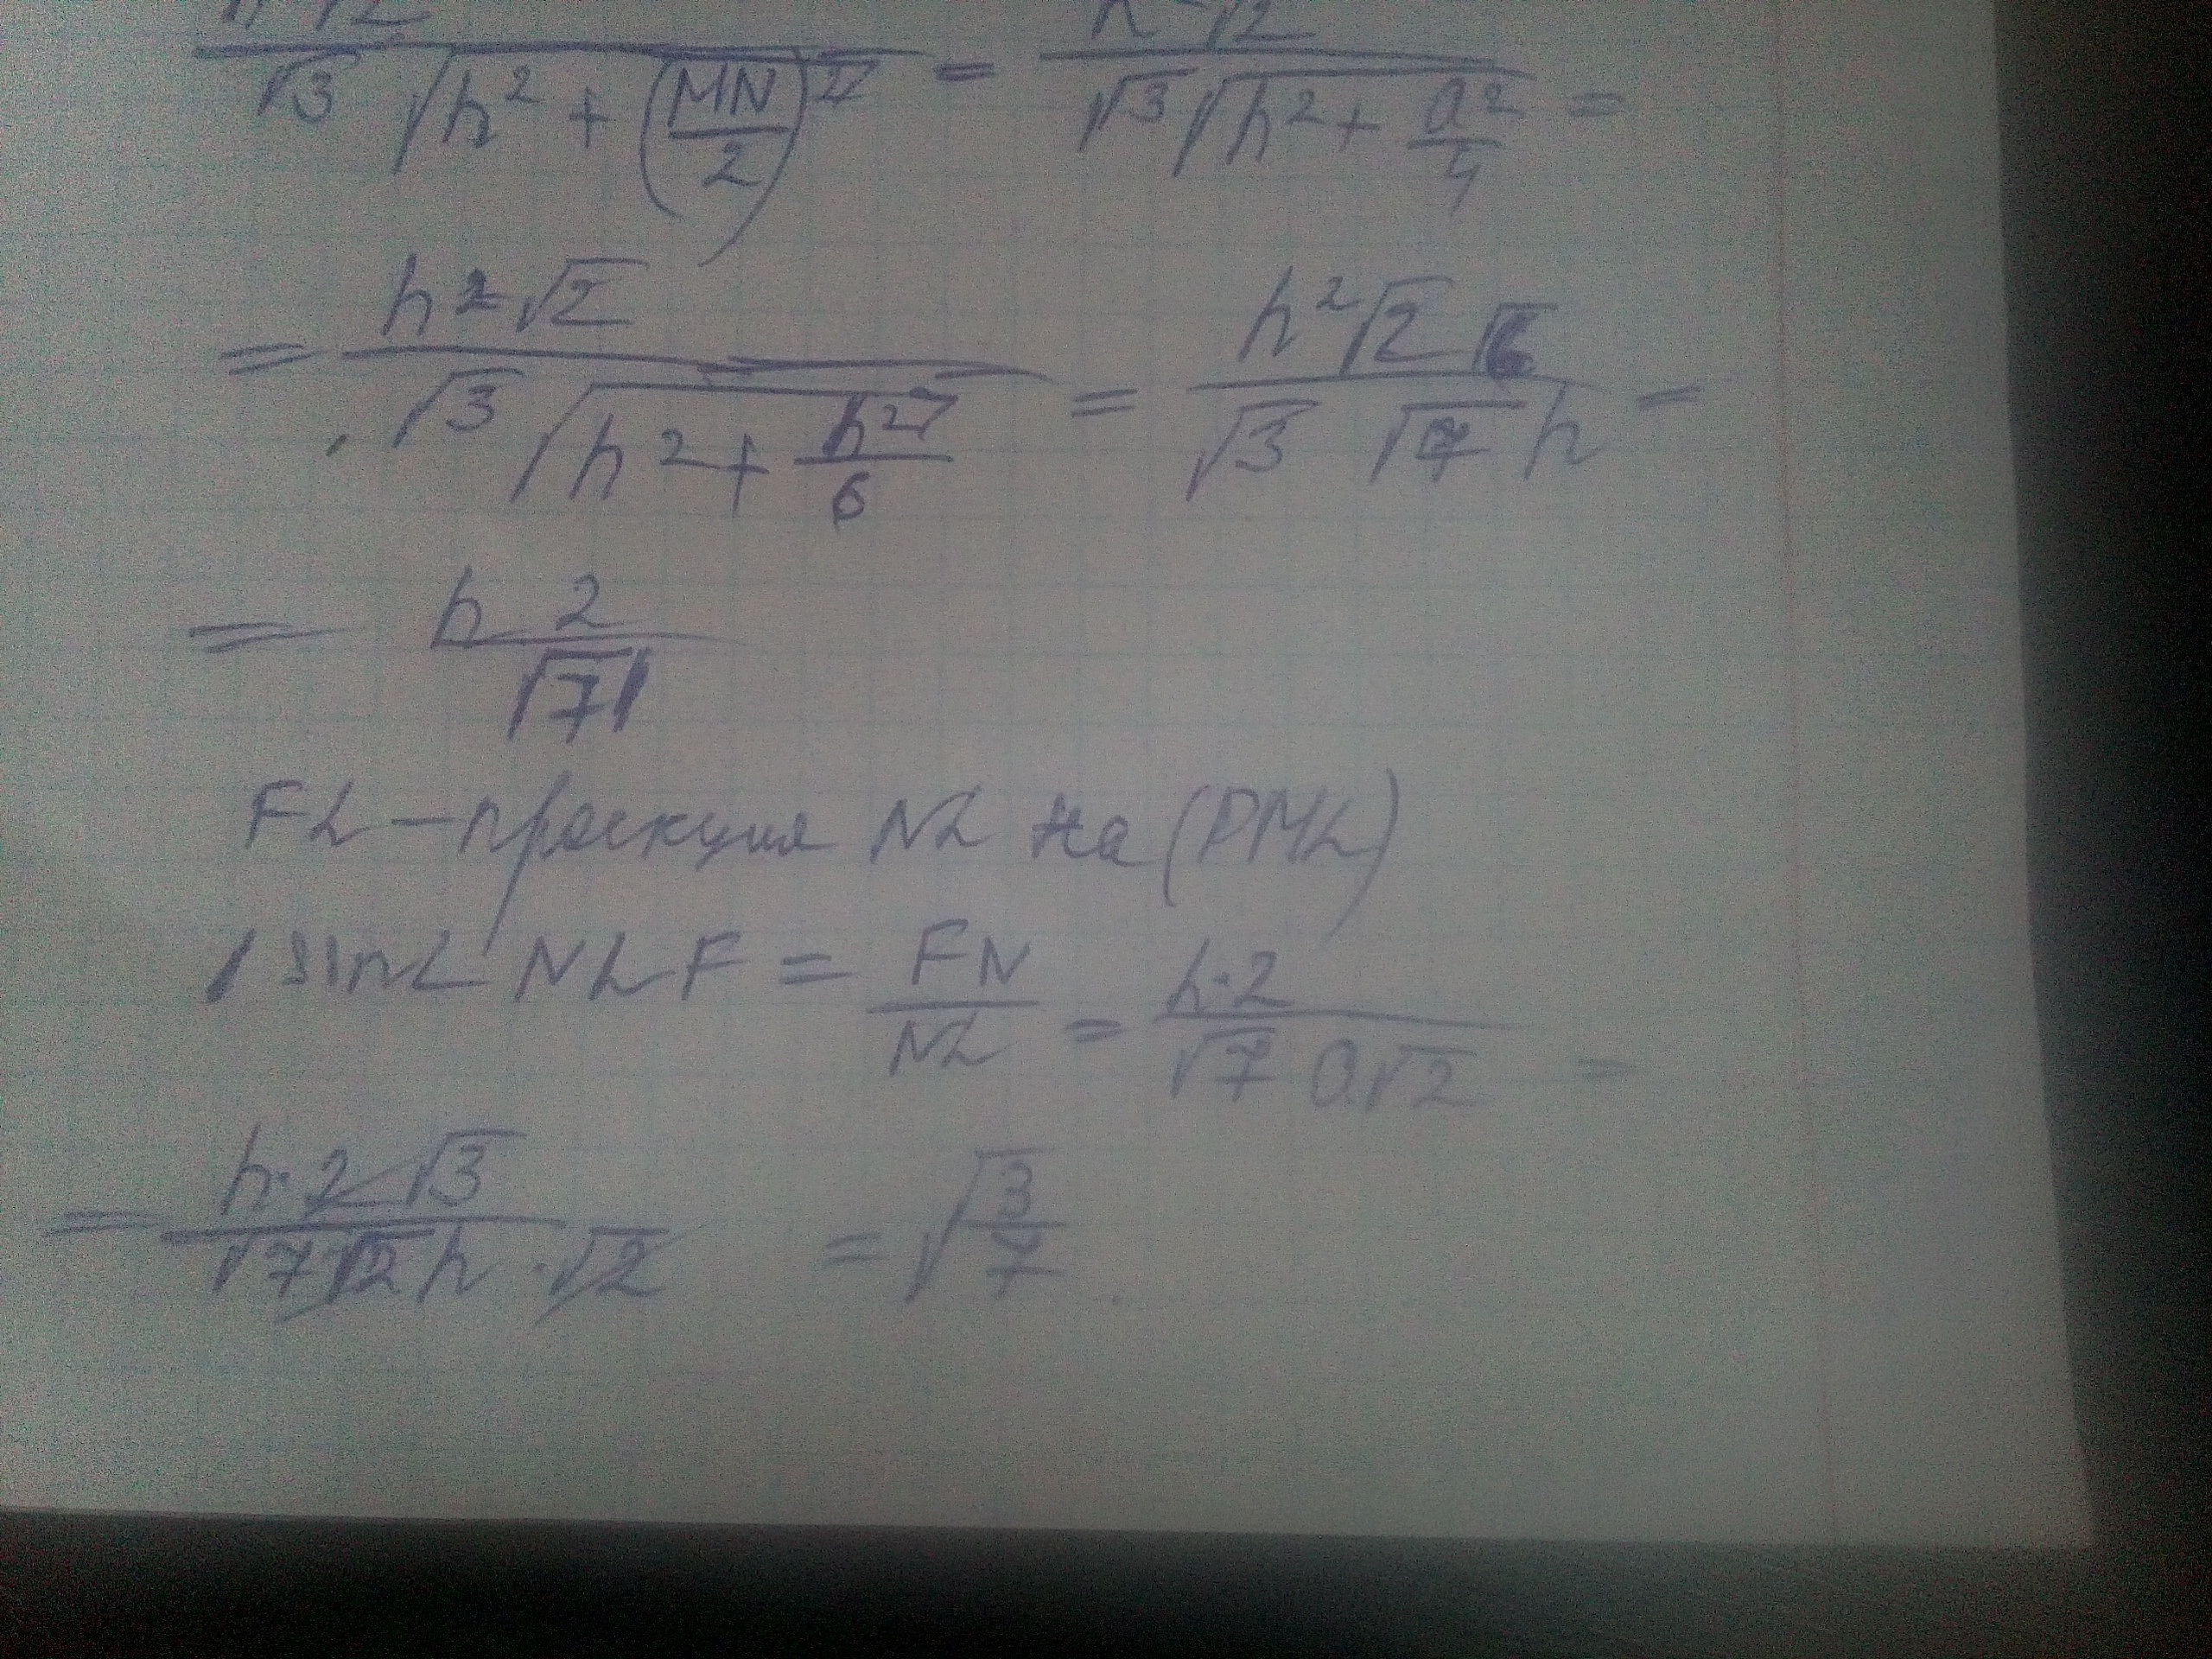 h²√2 / (√3 √(h² + (MN/2)²)) = h²√2 / (√3 √(h² + a²/4)) =
= h²√2 / (√3 √(h² + h²/6)) = h²√2 √6 / (√3 √7 h) =
= h 2 / √7
FL – проекция NL на (PML)
sin∠NLF = FN / NL = h·2 / (√7 a√2) =
= h·2√3 / (√7 √2 h·√2) = √(3/7)